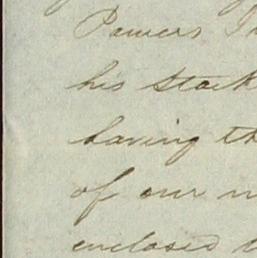 Powers
his stock
having th
of our
enclosed